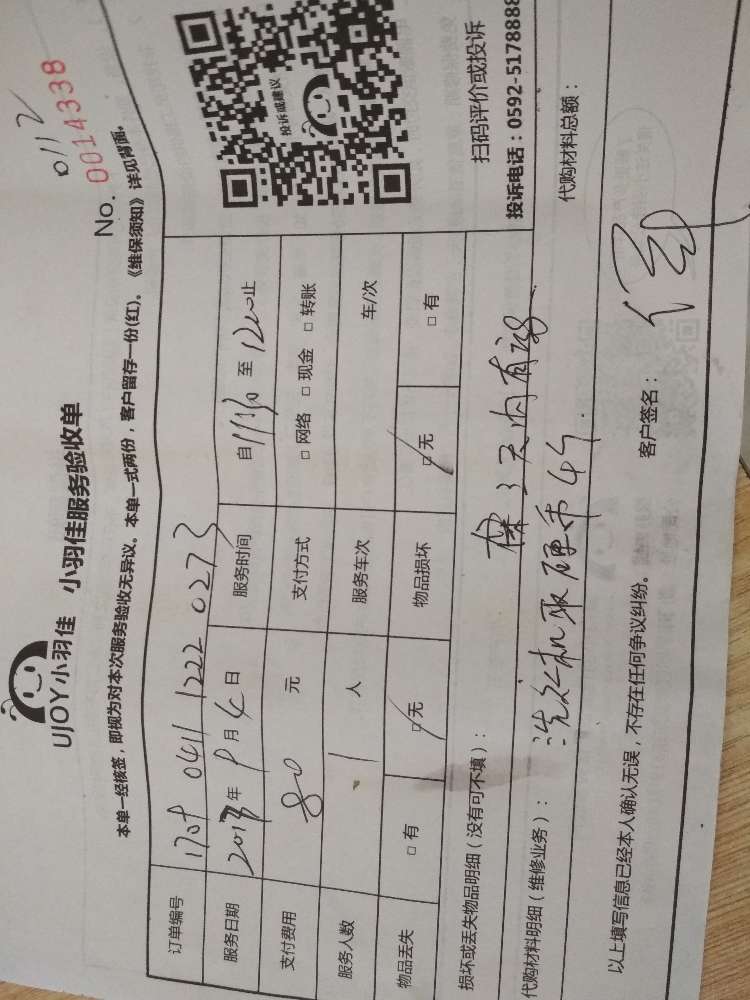 UJOY小羽佳 小羽佳服务验收单
0112
No. 0014338
本单一经核签，即视为对本次服务验收无异议。本单一式两份，客户留存一份(红)。《维保须知》详见背面。
订单编号 1709 0411 1222 0273
服务日期 2017年9月4日 服务时间 自1130至1200止
支付费用 80元 支付方式 □网络 □现金 □转账
服务人数 1人 服务车次 车/次
物品丢失 □有 □无 物品损坏 □无 □有
投诉或建议
扫码评价或投诉
投诉电话：0592-5178888
损坏或丢失物品明细（没有可不填）：
代购材料明细（维修业务）： 代购材料总额：
洗衣机取硬币4个.
以上填写信息已经本人确认无误，不存在任何争议纠纷。 客户签名：